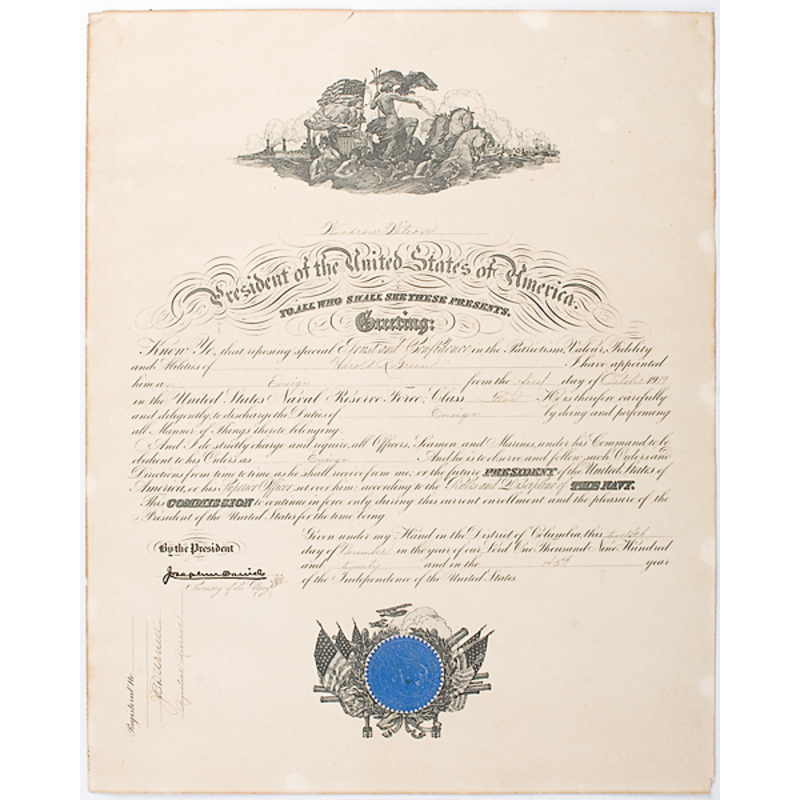 Woodrow Wilson
President of the United States of America.
TO ALL WHO SHALL SEE THESE PRESENTS,
Greeting:
Know Ye, that reposing special Trust and Confidence in the Patriotism, Valour, Fidelity
and Abilities of Harold I have appointed
him a Ensign from the first day of October 1919
in the United States Naval Reserve Force: Class He is therefore carefully
and diligently to discharge the Duties of Ensign by doing and performing
all Manner of Things thereto belonging.
And I do strictly charge and require, all Officers, Seamen and Marines, under his Command to be
obedient to his Orders as Ensign And he is to observe and follow such Orders and
Directions from time to time as he shall receive from me, or the future PRESIDENT of the United States of
America, or his Superior Officer set over him, according to the Rules and Discipline of THE NAVY.
This COMMISSION to continue in force only during this current enrollment and the pleasure of the
President of the United States for the time being.
Given under my Hand in the District of Columbia, this
day of November in the year of our Lord One Thousand Nine Hundred
and twenty and in the 145th year
of the Independence of the United States.
By the President
Josephus Daniels
Secretary of the Navy
Registered No.